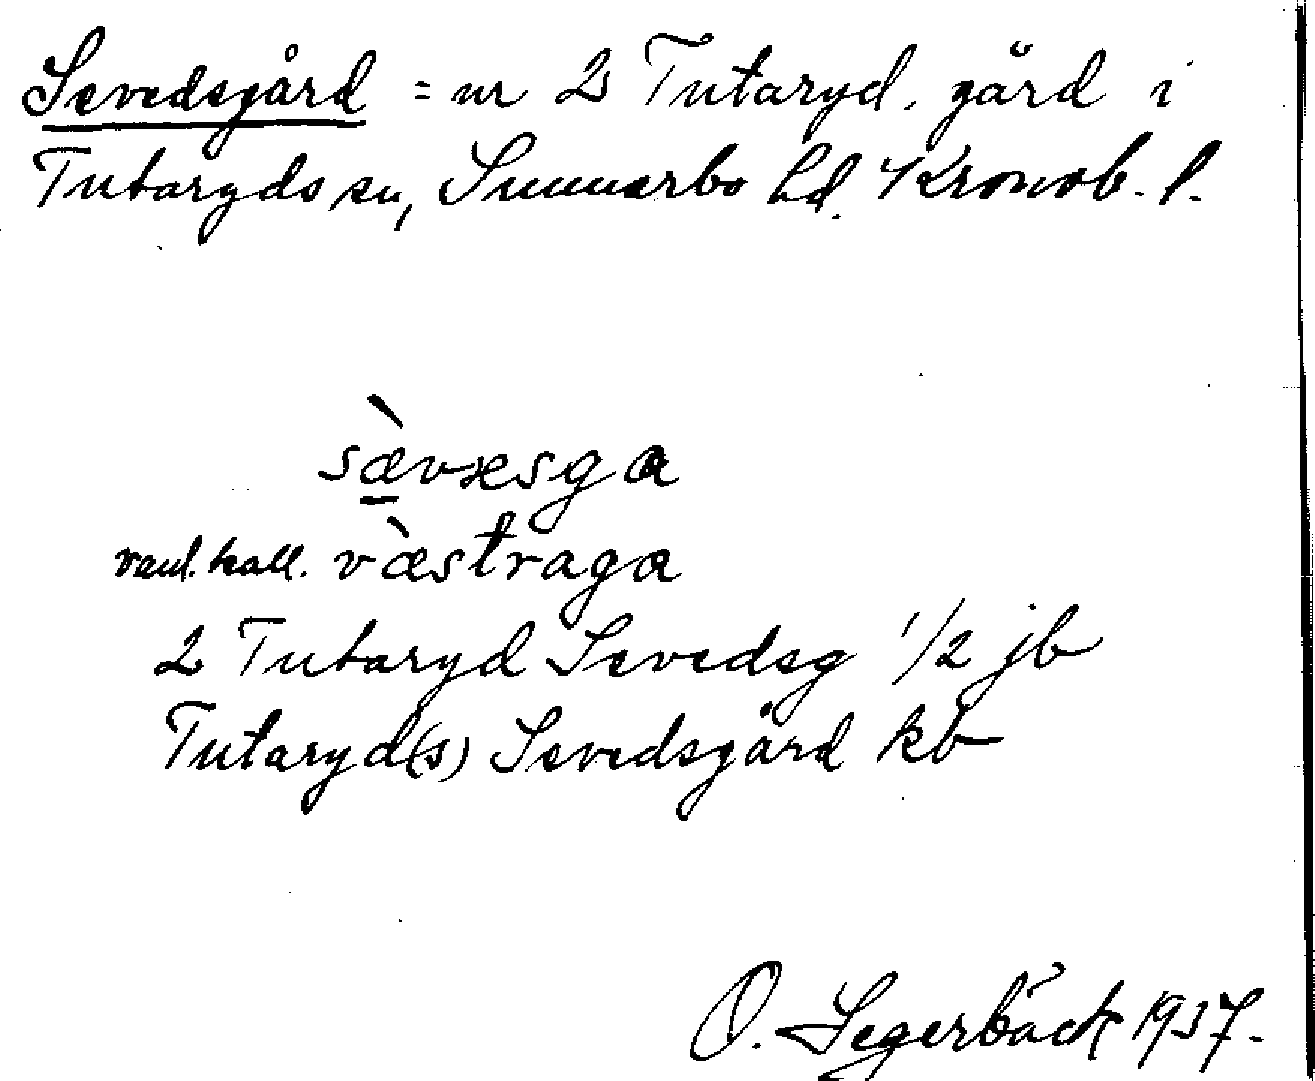 Sevedsgård = nr 2 Tutaryd, gård i
Tutaryds sn, Sunnerbo hd. Kronob. l.
sæ̀vəsga
vanl. kall. væ̀straga
2 Tutaryd Sevedsg 1/2 jb
Tutaryd(s) Sevedsgård kb
O. Segerbäck 1937.